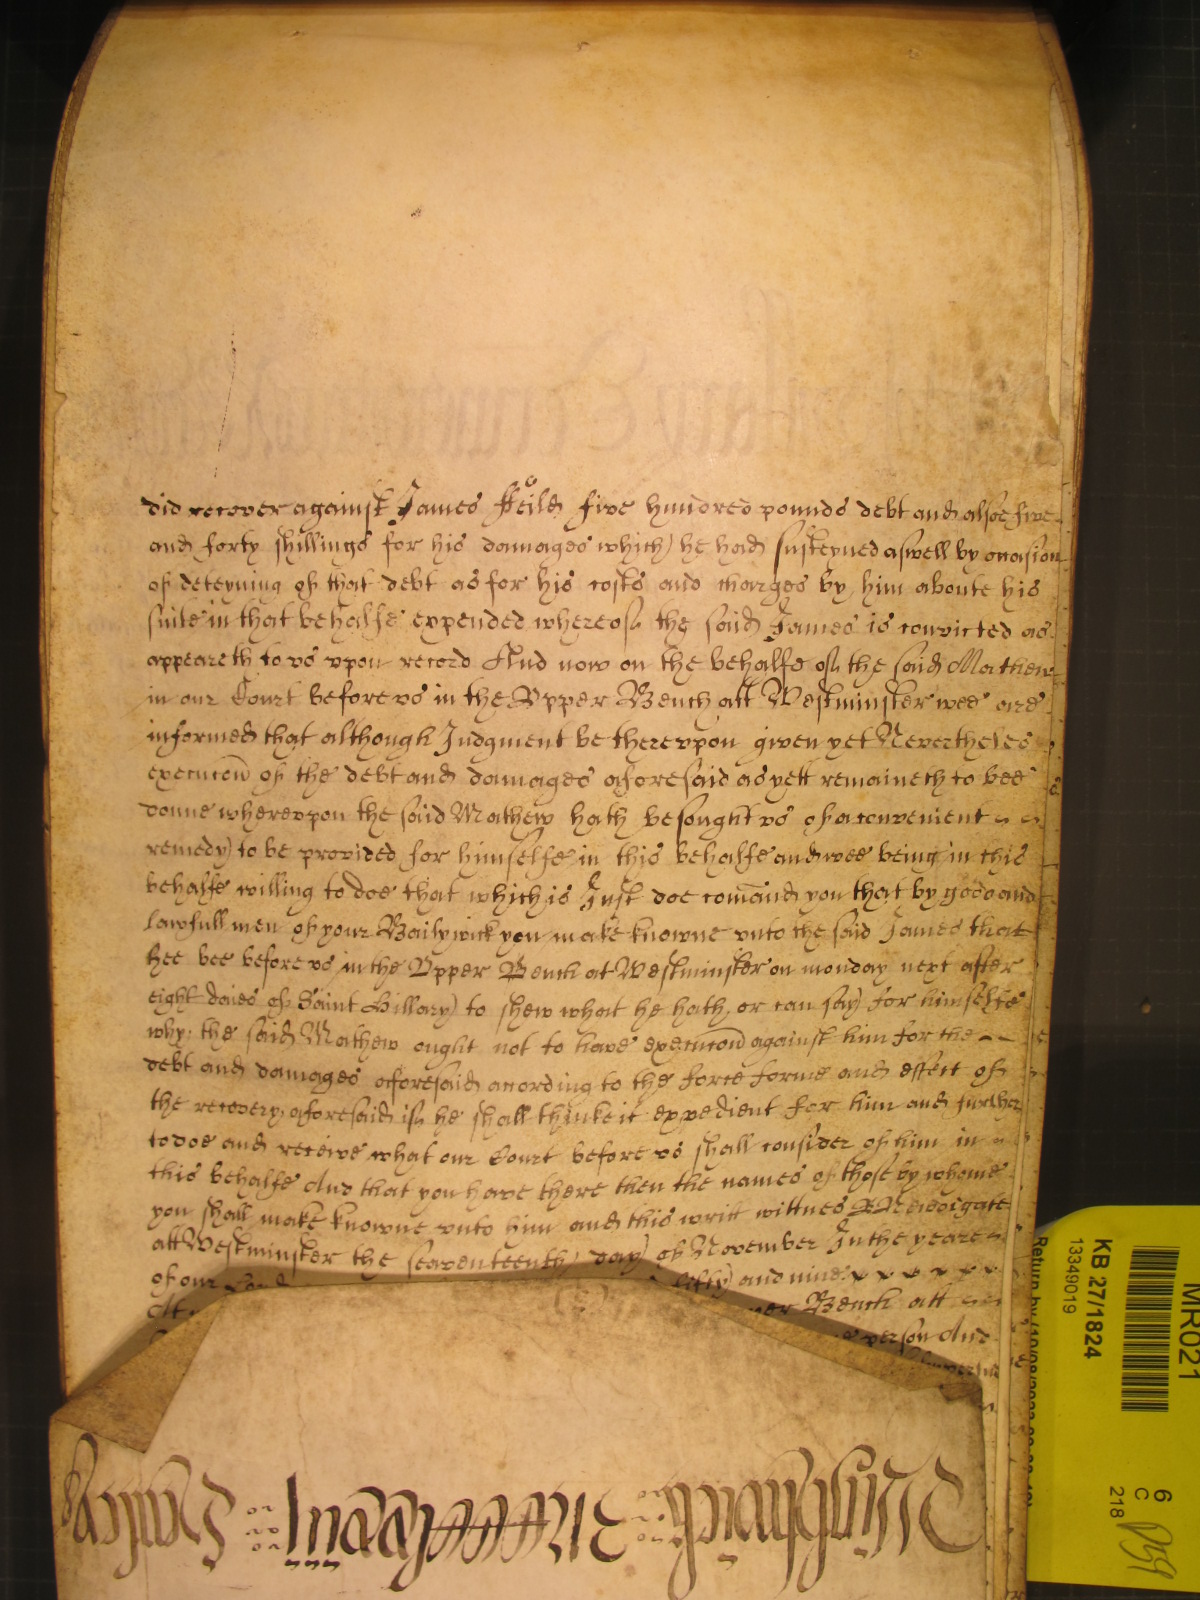 did recover against James Feild five hundred pounds debt and alsoe five
and forty shillings for his damages which he had susteyned aswell by occasion
of deteyning of that debt as for his costs and charges by him aboute his
suite in that behalfe expended whereof the said James is convicted as
appeareth to us upon record And now on the behalfe of the said Mathew
in our Court before us in the Upper Bench att Westminster wee are
informed that although Judgment be thereupon given yet Nevertheles
execucon of the debt and damages aforesaid as yett remaineth to bee
donne whereupon the said Mathew hath besought us of a convenient
remedy to be provided for himselfe in this behalfe and wee being in this
behalfe willing to doe that which is Just doe comand you that by good and
lawfull men of your Bailywick you make knowne unto the said James that
hee bee before us in the Upper Bench at Westminster on monday next after
eight daies of Saint Hillary to shew what he hath or can say for himselfe
why the said Mathew ought not to have execucon against him for the
debt and damages aforesaid according to the force forme and effect of
the recovery aforesaid if he shall thinke it expedient for him and further
to doe and receive what our Court before us shall consider of him in
this behalfe And that you have there then the names of those by whome
you shall make knowne unto him and this writt wittnes R Newdigate
att Westminster the seaventeenth day of November In the yeare
of our Lord fifty and nine
At Bench att
person And
MR021
KB 27/1824
13349019
6
C
218